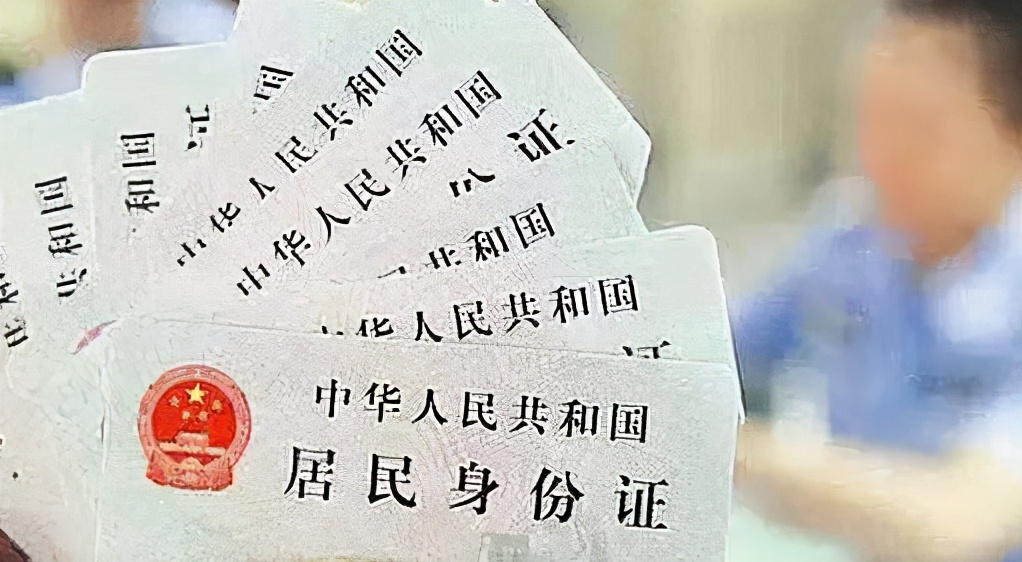 国
中华人民共和国
中华人民共和国
证
和国
证
共和国
共和国
华人民共和国
证
中华人民共和国
居民身份证